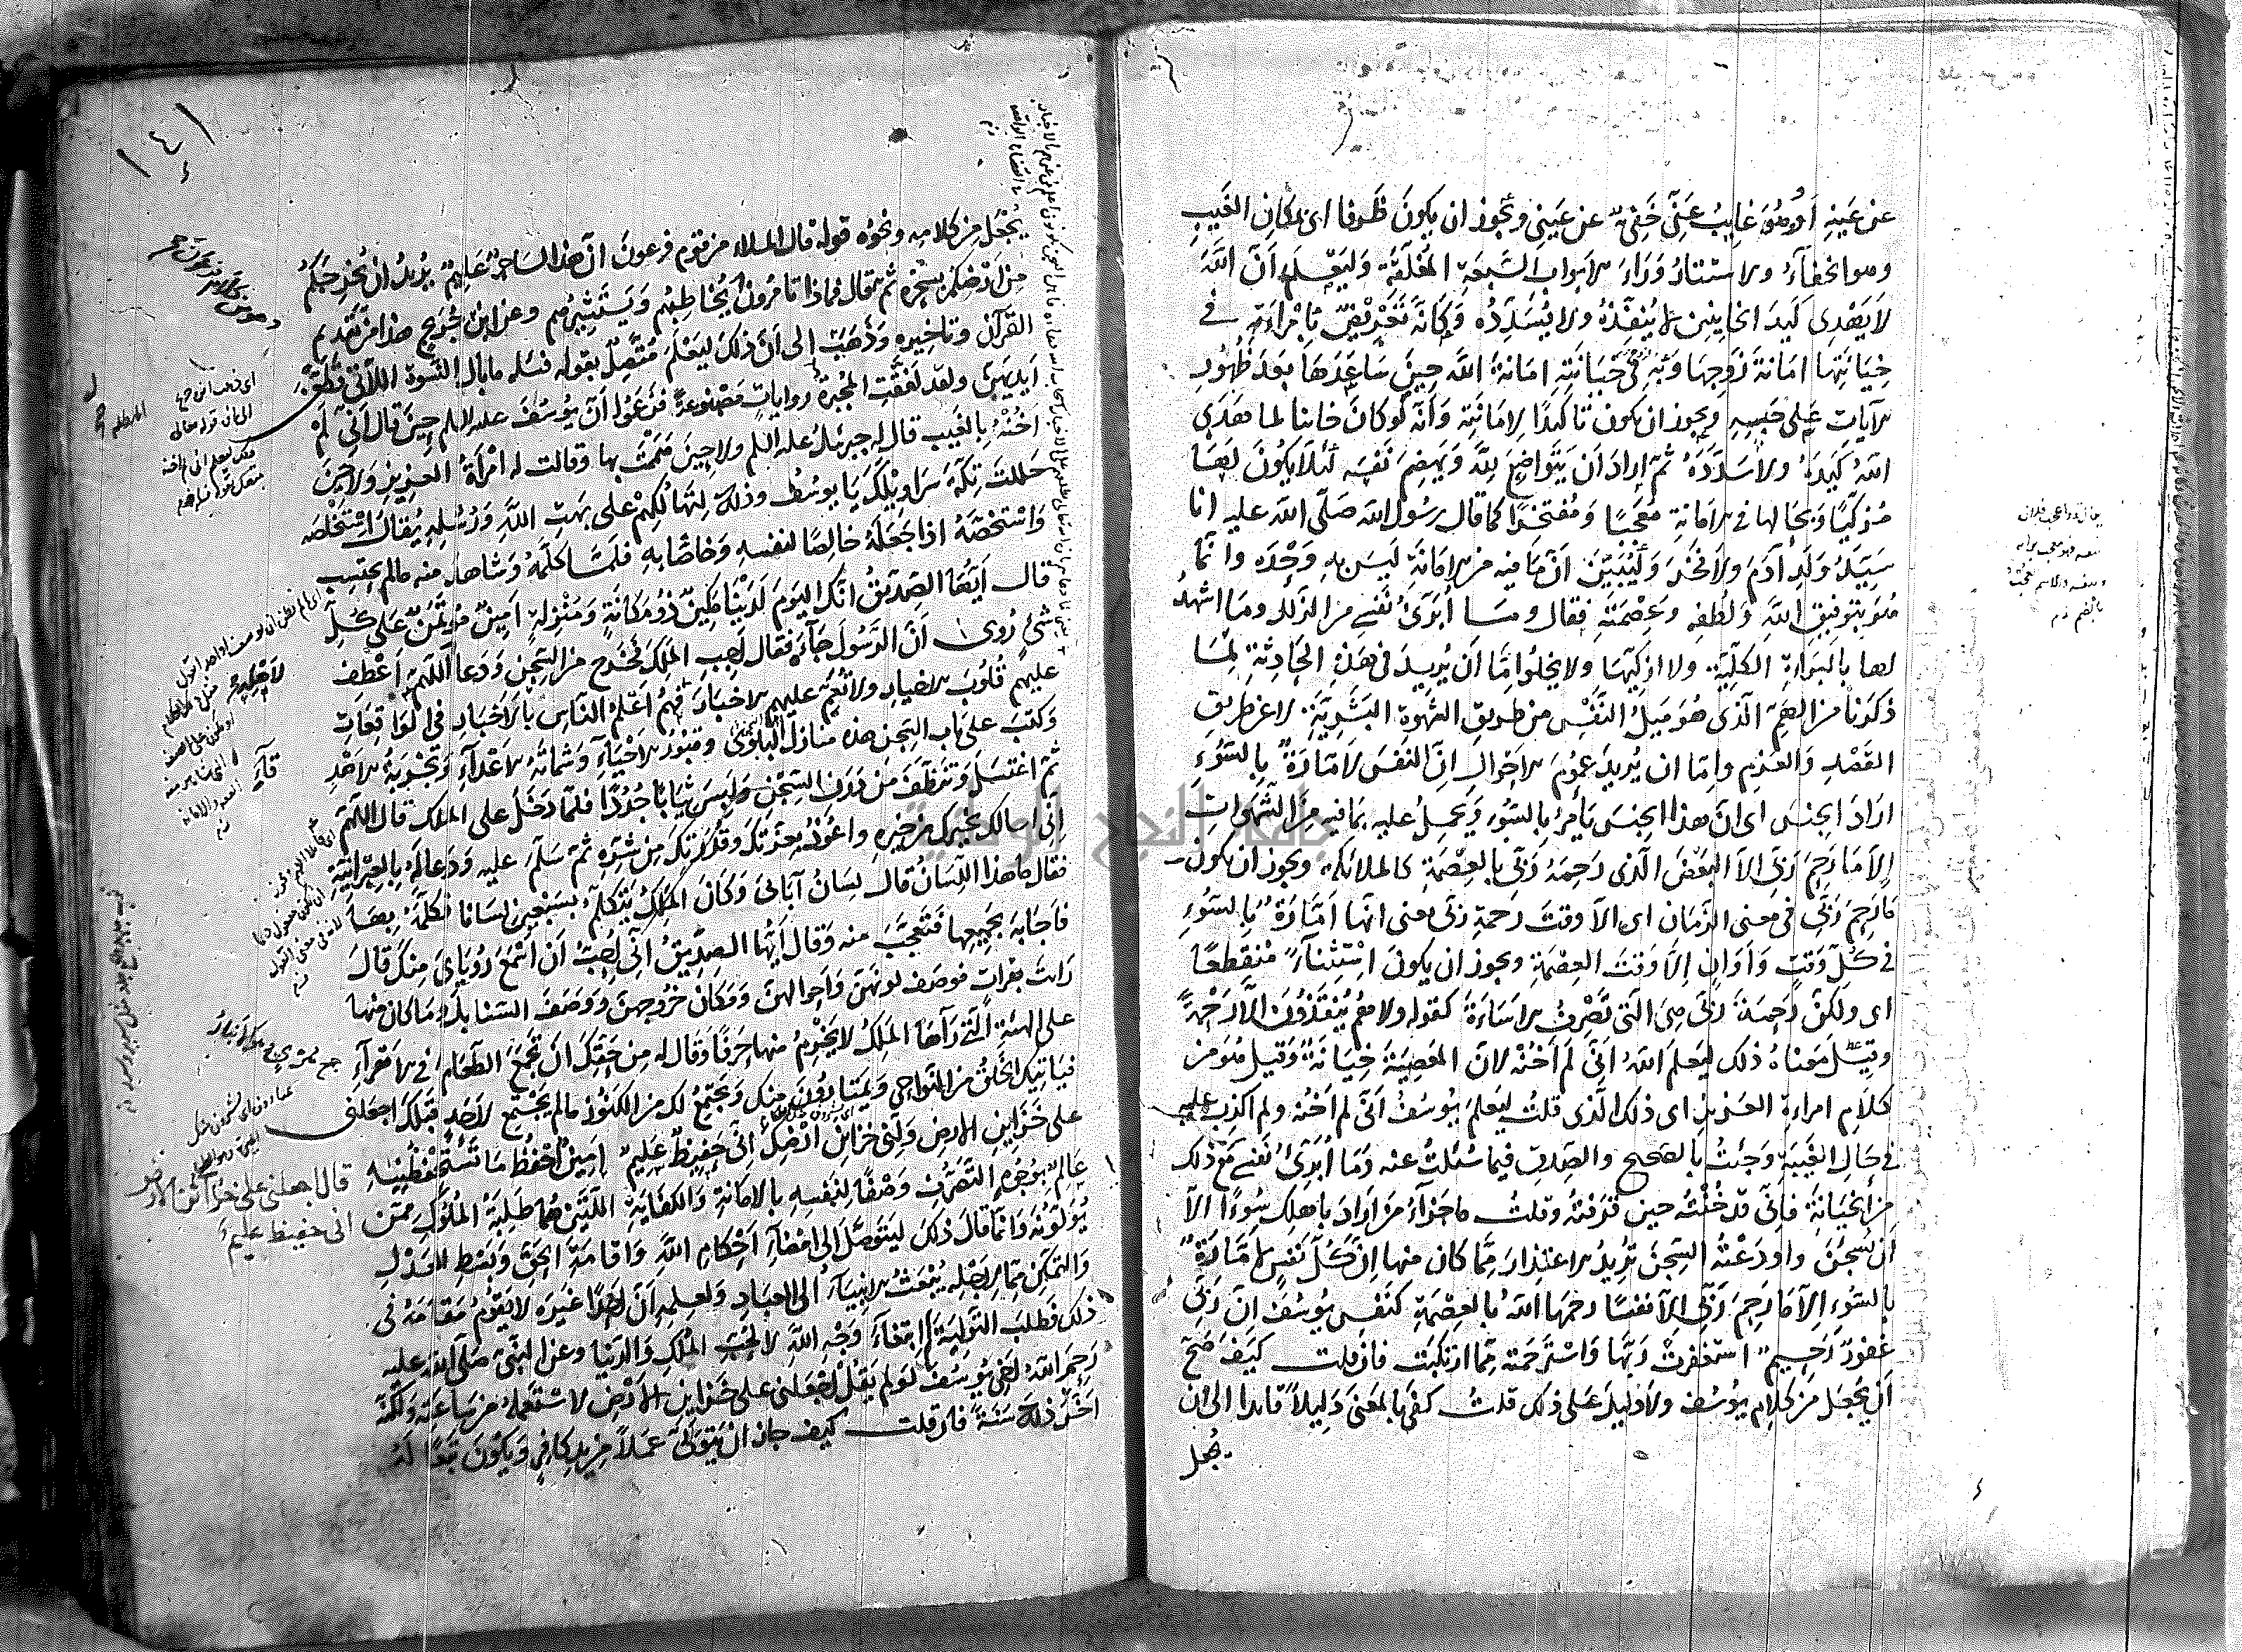 عن عينه او هو غايب عنّي خفيّ عن عيني ويجوز ان يكون ظرفا اي بمكان الغيب
وهو الخفآء والاستتار وراء الابواب السبعة المغلقة وليعلم انّ الله
لا يهدي كيد الخاينين لا ينفّذه ولا يسدّده وكانّه تعريض بامراته في
خيانتها امانة زوجها وبه في خيانته امانة الله حين ساعدها بعد ظهور
الآيات على حبسه ويجوز ان يكون تاكيدًا لامانته وانّه لو كان خاينا لما هدى
الله كيده ولا سدّده ثمّ اراد ان يتواضع لله ويهضم نفسه لئلا يكون لها
مزكّيا وبحالها في الامانة معجبًا ومفتخرًا كما قال رسول الله صلّى الله عليه انا
سيّد ولد آدم ولا فخر وليبيّن انّ ما فيه من الامانة ليس به وحده وانّما
هو بتوفيق الله ولطفه وعصمته فقال وما أبرّئ نفسي من الزلل وما اشهد
لها بالبراءة الكلّية ولا ازكّيها ولا يخلوا امّا ان يريد في هذه الحادثة لما
ذكرنا من الهمّ الّذي هو ميل النّفس من طريق الشهوة البشريّة لا عن طريق
القصد والعزم وامّا ان يريد عموم الاحوال انّ النفس لامّارة بالسّوء
اراد الجنس اي انّ هذا الجنس يأمر بالسّوء ويحمل عليه بما فيه من الشّهوات
الا ما رحم ربّي الا البعض الّذي رحمه ربّي بالعصمة كالملائكة ويجوز ان يكون
ما رحم ربّي في معنى الزمان اي الا وقت رحمة ربّي يعني انّها امّارة بالسّوء
في كلّ وقت واوان الا وقت العصمة ويجوز ان يكون استثنآء منقطعًا
اي ولكن رحمة ربّي هي الّتي تصرف الاساءة كقوله ولا هم ينقذون الا رحمة
وقيل معناه ذلك ليعلم الله انّي لم اخنه لانّ المعصية خيانة وقيل هو من
كلام امراة العزيز اي ذلك الّذي قلت ليعلم يوسف انّي لم اخنه ولم اكذب عليه
في حال الغيبة وجئت بالصحيح والصّدق فيما سئلت عنه وما أبرّئ نفسي مع ذلك
من الخيانة فانّي قد خنته حين قرفته وقلت ما جزآء من اراد باهلك سوءًا الا
ان يسجن واودعته السّجن تريد الاعتذار ممّا كان منها انّ كلّ نفس لامّارة
بالسّوء الا ما رحم ربّي الا نفسًا رحمها الله بالعصمة كنفس يوسف انّ ربّي
غفور رحيم استغفرت ربّها واسترحمته ممّا ارتكبت فان قلت كيف صحّ
ان يجعل من كلام يوسف ولا دليل على ذلك قلت كفى بالمعنى دليلاً قايدا الى ان
يجعل
١٤١
يجعل من كلامه ونحوه قوله قال الملاء من قوم فرعون انّ هذا لساحر عليم يريد ان يخرجكم
من ارضكم بسحره ثمّ قال فماذا تامرون يخاطبهم ويستشيرهم وعن ابن جريج هذا من تقديم
القرآن وتاخيره وذهب الى انّ ذلك ليعلم متّصل بقوله فسله ما بال النّسوة اللاتي قطّعن
ايديهنّ ولقد لفّقت المجبرة روايات مصنوعة فزعموا انّ يوسف عليه السلم حين قال انّي لم
اخنه بالغيب قال له جبرئيل عليه السلم ولا حين هممت بها وقالت له امراة العزيز ولا حين
حللت تكّة سراويلك يا يوسف وذلك لتهالكهم على بهت الله ورسله يقال استخلصه
واستخصّه اذا جعله خالصًا لنفسه وخاصّا به فلمّا كلّمه وشاهد منه ما لم يحتسب
قال ايّها الصدّيق انّك اليوم لدينا مكين ذو مكانة ومنزلة امين مؤتمن على كلّ
شيء روي انّ الرّسول جآءه فقال اجب الملك فخرج من السّجن ودعا لاهله اللّهمّ اعطف
عليهم قلوب الاخيار ولا تعمّ عليهم الاخبار فهم اعلم النّاس بالاخبار في الواقعات
وكتب على باب السّجن هذه منازل البلوى وقبور الاحياء وشماتة الاعدآء وتجربة الاصدقآء
ثمّ اغتسل وتنظّف من درن السّجن ولبس ثيابًا جددًا فلمّا دخل على الملك قال اللهمّ
انّي اسالك بخيرك من خيره واعوذ بعزّتك وقدرتك من شرّه ثمّ سلّم عليه ودعا له بالعبرانيّة
فقال ما هذا اللّسان قال لسان آبائي وكان الملك يتكلّم بسبعين لسانا فكلّمه بها
فاجابه بجميعها فتعجّب منه وقال ايّها الصدّيق انّي احبّ ان اسمع رؤياي منك قال
رايت بقرات فوصف لونهنّ واحوالهنّ ومكان خروجهنّ ووصف السّنابل وما كان منها
على الهيئة الّتي رآها الملك لا يخرم منها حرفًا وقال له من حقّك ان تجمع الطّعام في الاهرآء
فياتيك الخلق من النّواحي ويمتارون منك ويجتمع لك من الكنوز ما لم يجتمع لاحد قبلك اجعلني
على خزاين الارض ولّني خزاين ارضك انّي حفيظ عليم امين احفظ ما تستحفظنيه
عالم بوجوه التّصرّف وصفًا لنفسه بالامانة والكفاية اللّتين هما طلبة الملوك ممّن
يولّونه وانّما قال ذلك ليتوصّل الى امضآء احكام الله واقامة الحقّ وبسط العدل
والتّمكّن ممّا لاجله يبعث الانبيآء الى العباد ولعلمه انّ احدًا غيره لا يقوم مقامه في
ذلك فطلب التّولية ابتغآء وجه الله لا لحبّ الملك والدّنيا وعن النّبيّ صلّى الله عليه
رحم الله اخي يوسف لو لم يقل اجعلني على خزاين الارض لاستعمله من ساعته ولكنّه
اخّر ذلك سنة فان قلت كيف جاز ان يتولّى عملاً من يد كافر ويكون تبعًا له
قال اجعلني على خزائن الارض
اني حفيظ عليم
جامعة النجاح الوطنية